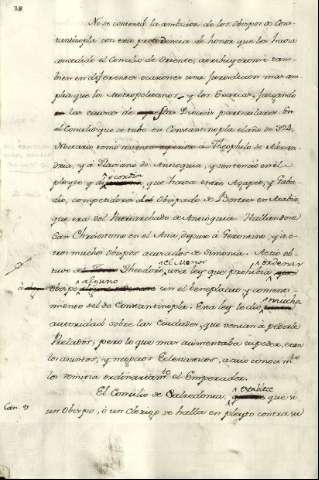 No se contentó la ambicion de los Obispos de Cons-
tantinopla con esta preferencia de honor que les havia
concedido el Concilio de Oriente, arrogaronse tam-
bien en diferentes ocasiones una jurisdiccion mas am-
plia que los Metropolitanos, y los Exarcas, juzgando
las causas de Diocesis particulares. En
el Concilio que se tubo en Constantinopla el año de 394
Nectario tomó asiento superior à Theophilo de Alexan-
dria, y à Flaviano de Antioquia, y sentenció en el
pleyto que havia entre Agapio, y Baba-
dio, competidores del Obispado de Bostra en Arabia,
que era del Patriarchado de Antioquia. Hallandose
San Chrisostomo en el Asia, depuso à Geroncio, y à o-
tros muchos Obispos acusados de Simonia. Atico ob-
el Menor ordenar
tuvo de Theodosio, una ley que prohibió
alguno
à Obispo sin el beneplacito y consenti-
miento del de Constantinopla. Esta ley le dio mucha
autoridad sobre las Ciudades, que venian à pedirle
Prelados; pero lo que mas aumentaba su poder, eran
los asuntos, y negocios Eclesiasticos, à cuio conocimto
los remitia ordinariamte el Emperador.
establece
El Concilio de Calcedonia, que si
Can. 9
un Obispo, ò un Clerigo se halla en pleyto contra su